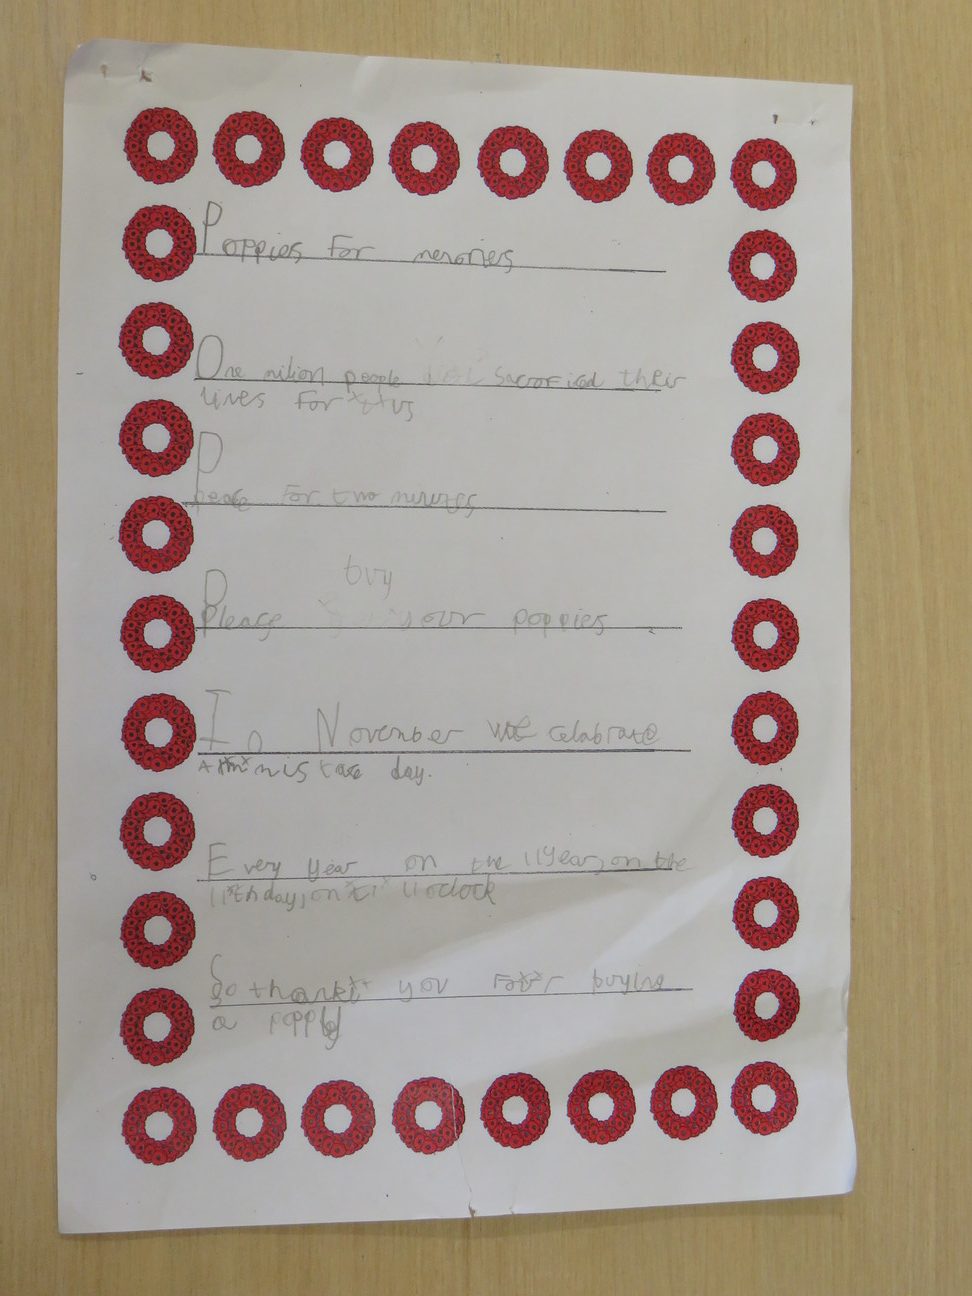 Poppies For memories
One milion people sacroficed their
lives for us
P
peace For two minutes
buy
Please your poppies
In November we celabrate
day.
Every year on the 11 year, on the
11th day, on 11 oclock
So thank you For buying
a poppy